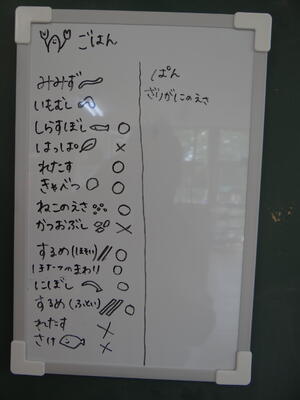 ごはん
みみず
いもむし
しらすぼし ○
はっぱ ×
れたす ○
きゃべつ ○
ねこのえさ ○
かつおぶし ×
するめ(ほそい) ○
のまわり ○
にぼし ○
するめ(ふとい) ○
れたす ×
さけ ×
ぱん
ざりがにのえさ